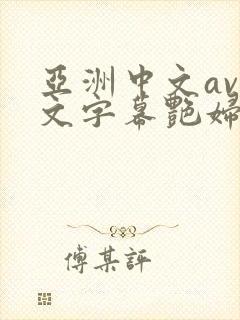 亞洲中文av
文字幕艷婦
傅某評